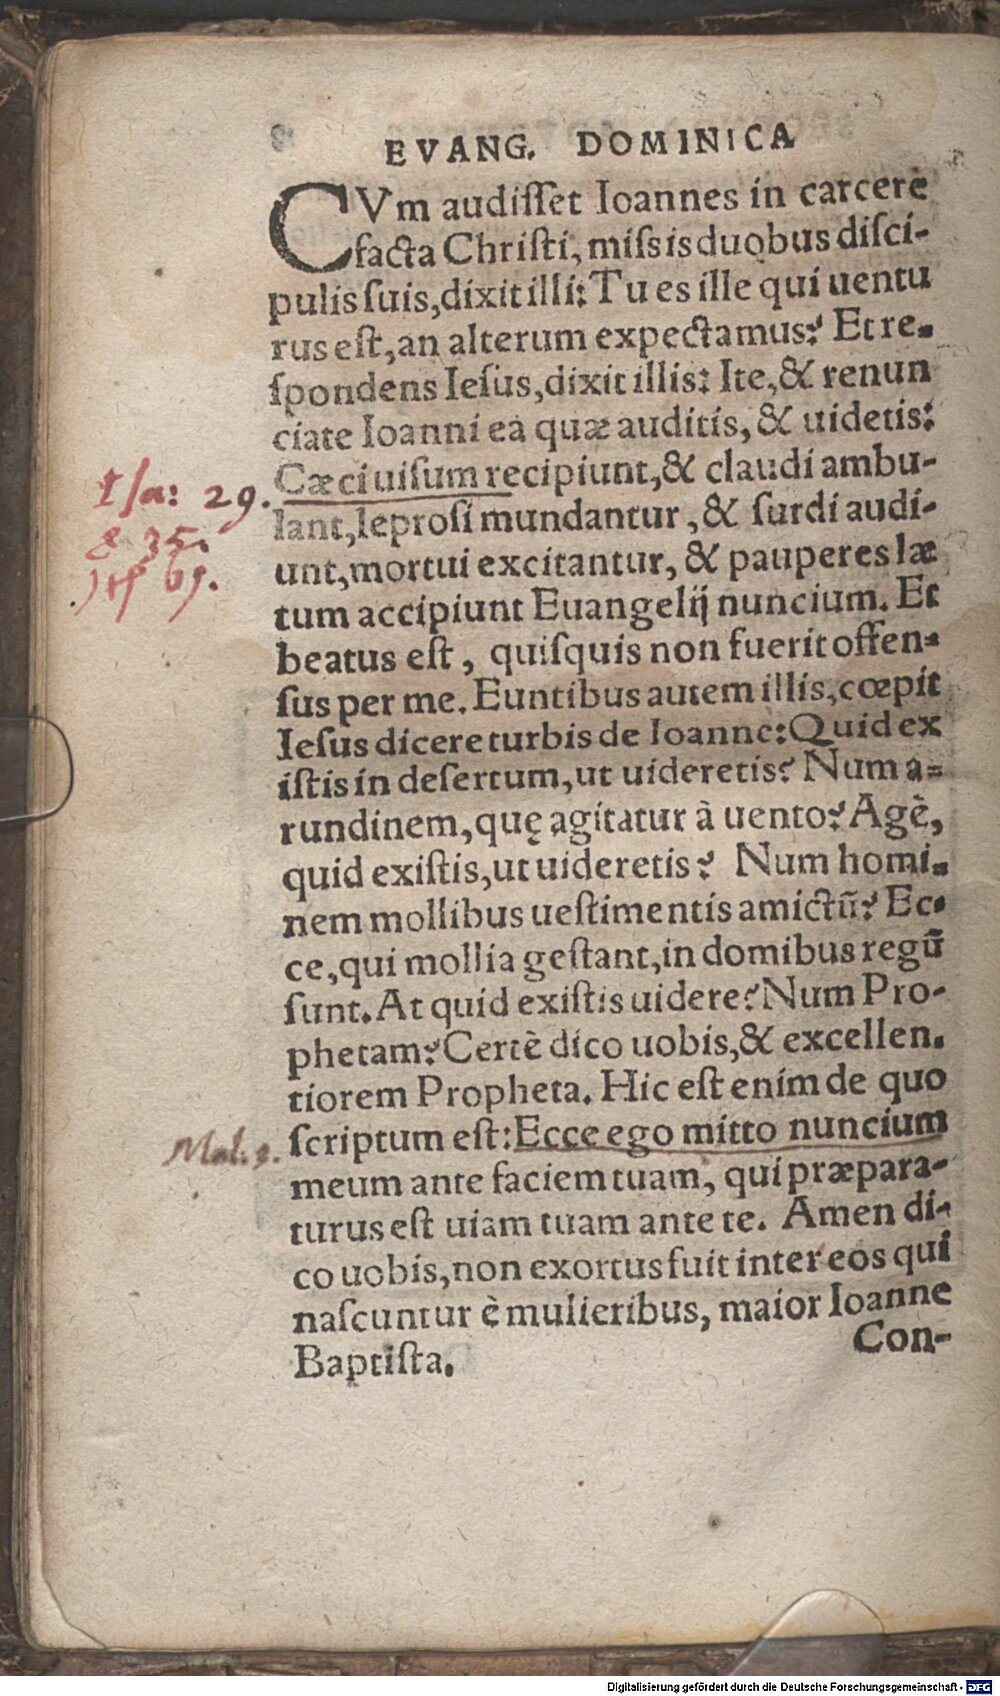 EVANG. DOMINICA
CVm audiſſet Ioannes in carcere
facta Chriſti, miſsis duobus diſci-
pulis ſuis, dixit illi: Tu es ille qui uentu
rus eſt, an alterum expectamus? Et re-
ſpondens Ieſus, dixit illis: Ite, & renun
ciate Ioanni ea quæ auditis, & uidetis:
Cæci uiſum recipiunt, & claudi ambu-
Iſa: 29.
lant, leproſi mundantur, & ſurdi audi-
& 35.
unt, mortui excitantur, & pauperes læ
61.
tum accipiunt Euangelij nuncium. Et
beatus eſt, quiſquis non fuerit offen-
ſus per me. Euntibus autem illis, cœpit
Ieſus dicere turbis de Ioanne: Quid ex
iſtis in deſertum, ut uideretis? Num a-
rundinem, quę agitatur à uento? Agè,
quid exiſtis, ut uideretis? Num homi-
nem mollibus ueſtimentis amictũ? Ec-
ce, qui mollia geſtant, in domibus regũ
ſunt. At quid exiſtis uidere? Num Pro-
phetam? Certè dico uobis, & excellen-
tiorem Propheta. Hic eſt enim de quo
ſcriptum eſt: Ecce ego mitto nuncium
Mal. 3.
meum ante faciem tuam, qui præpara-
turus eſt uiam tuam ante te. Amen di-
co uobis, non exortus fuit inter eos qui
naſcuntur è mulieribus, maior Ioanne
Baptiſta.
Con-
Digitalisierung gefördert durch die Deutsche Forschungsgemeinschaft - DFG